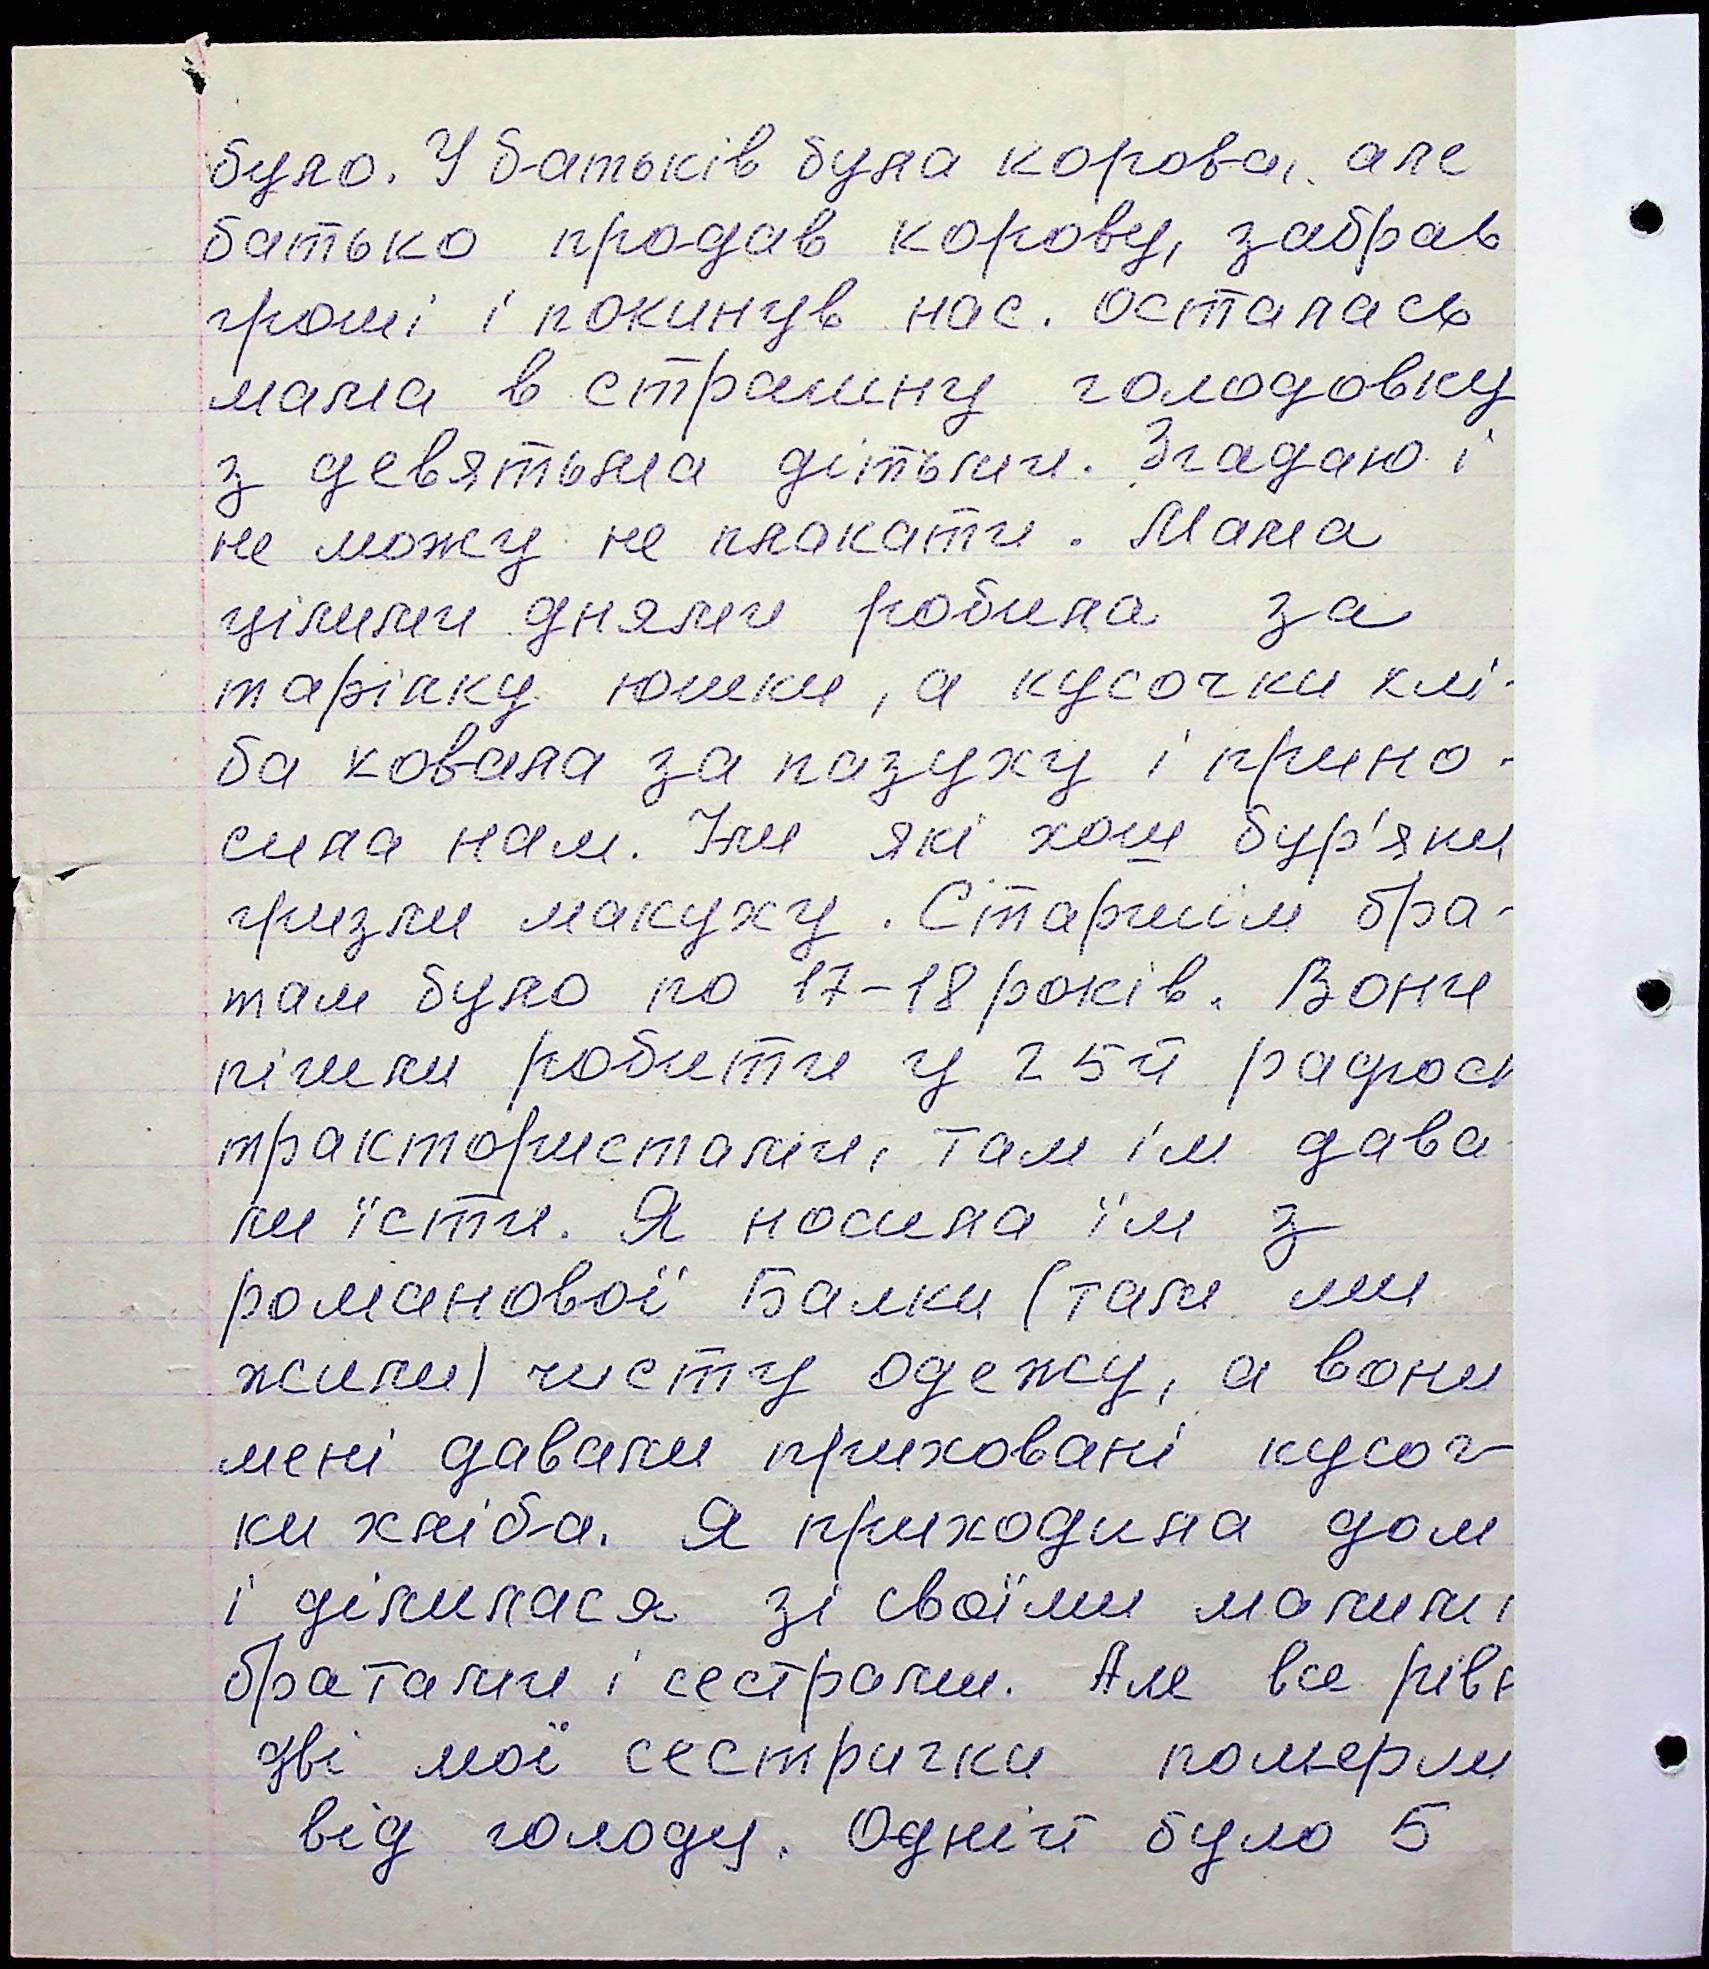 було. У батьків була корова, але
батько продав корову, забрав
гроші і покинув нас. Осталась
мама в страшну голодовку
з девятьма дітьми. Згадаю і
не можу не плакати. Мама
цілими днями робила за
тарілку юшки, а кусочки хлі-
ба ховала за пазуху і прино-
сила нам. Їли які хош бур'яни
гризли макуху. Старшім бра-
там було по 17-18 років. Вони
пішли робити у 25й радгосп
трактористами, там їм дава-
ли їсти. Я носила їм з
романової Балки (там ми
жили) чисту одежу, а вони
мені давали приховані кусоч-
ки хліба. Я приходила дом
і ділилася зі своїми малими
братами і сестрами. Але все рівн
дві мої сестрички померли
від голоду. Одній було 5